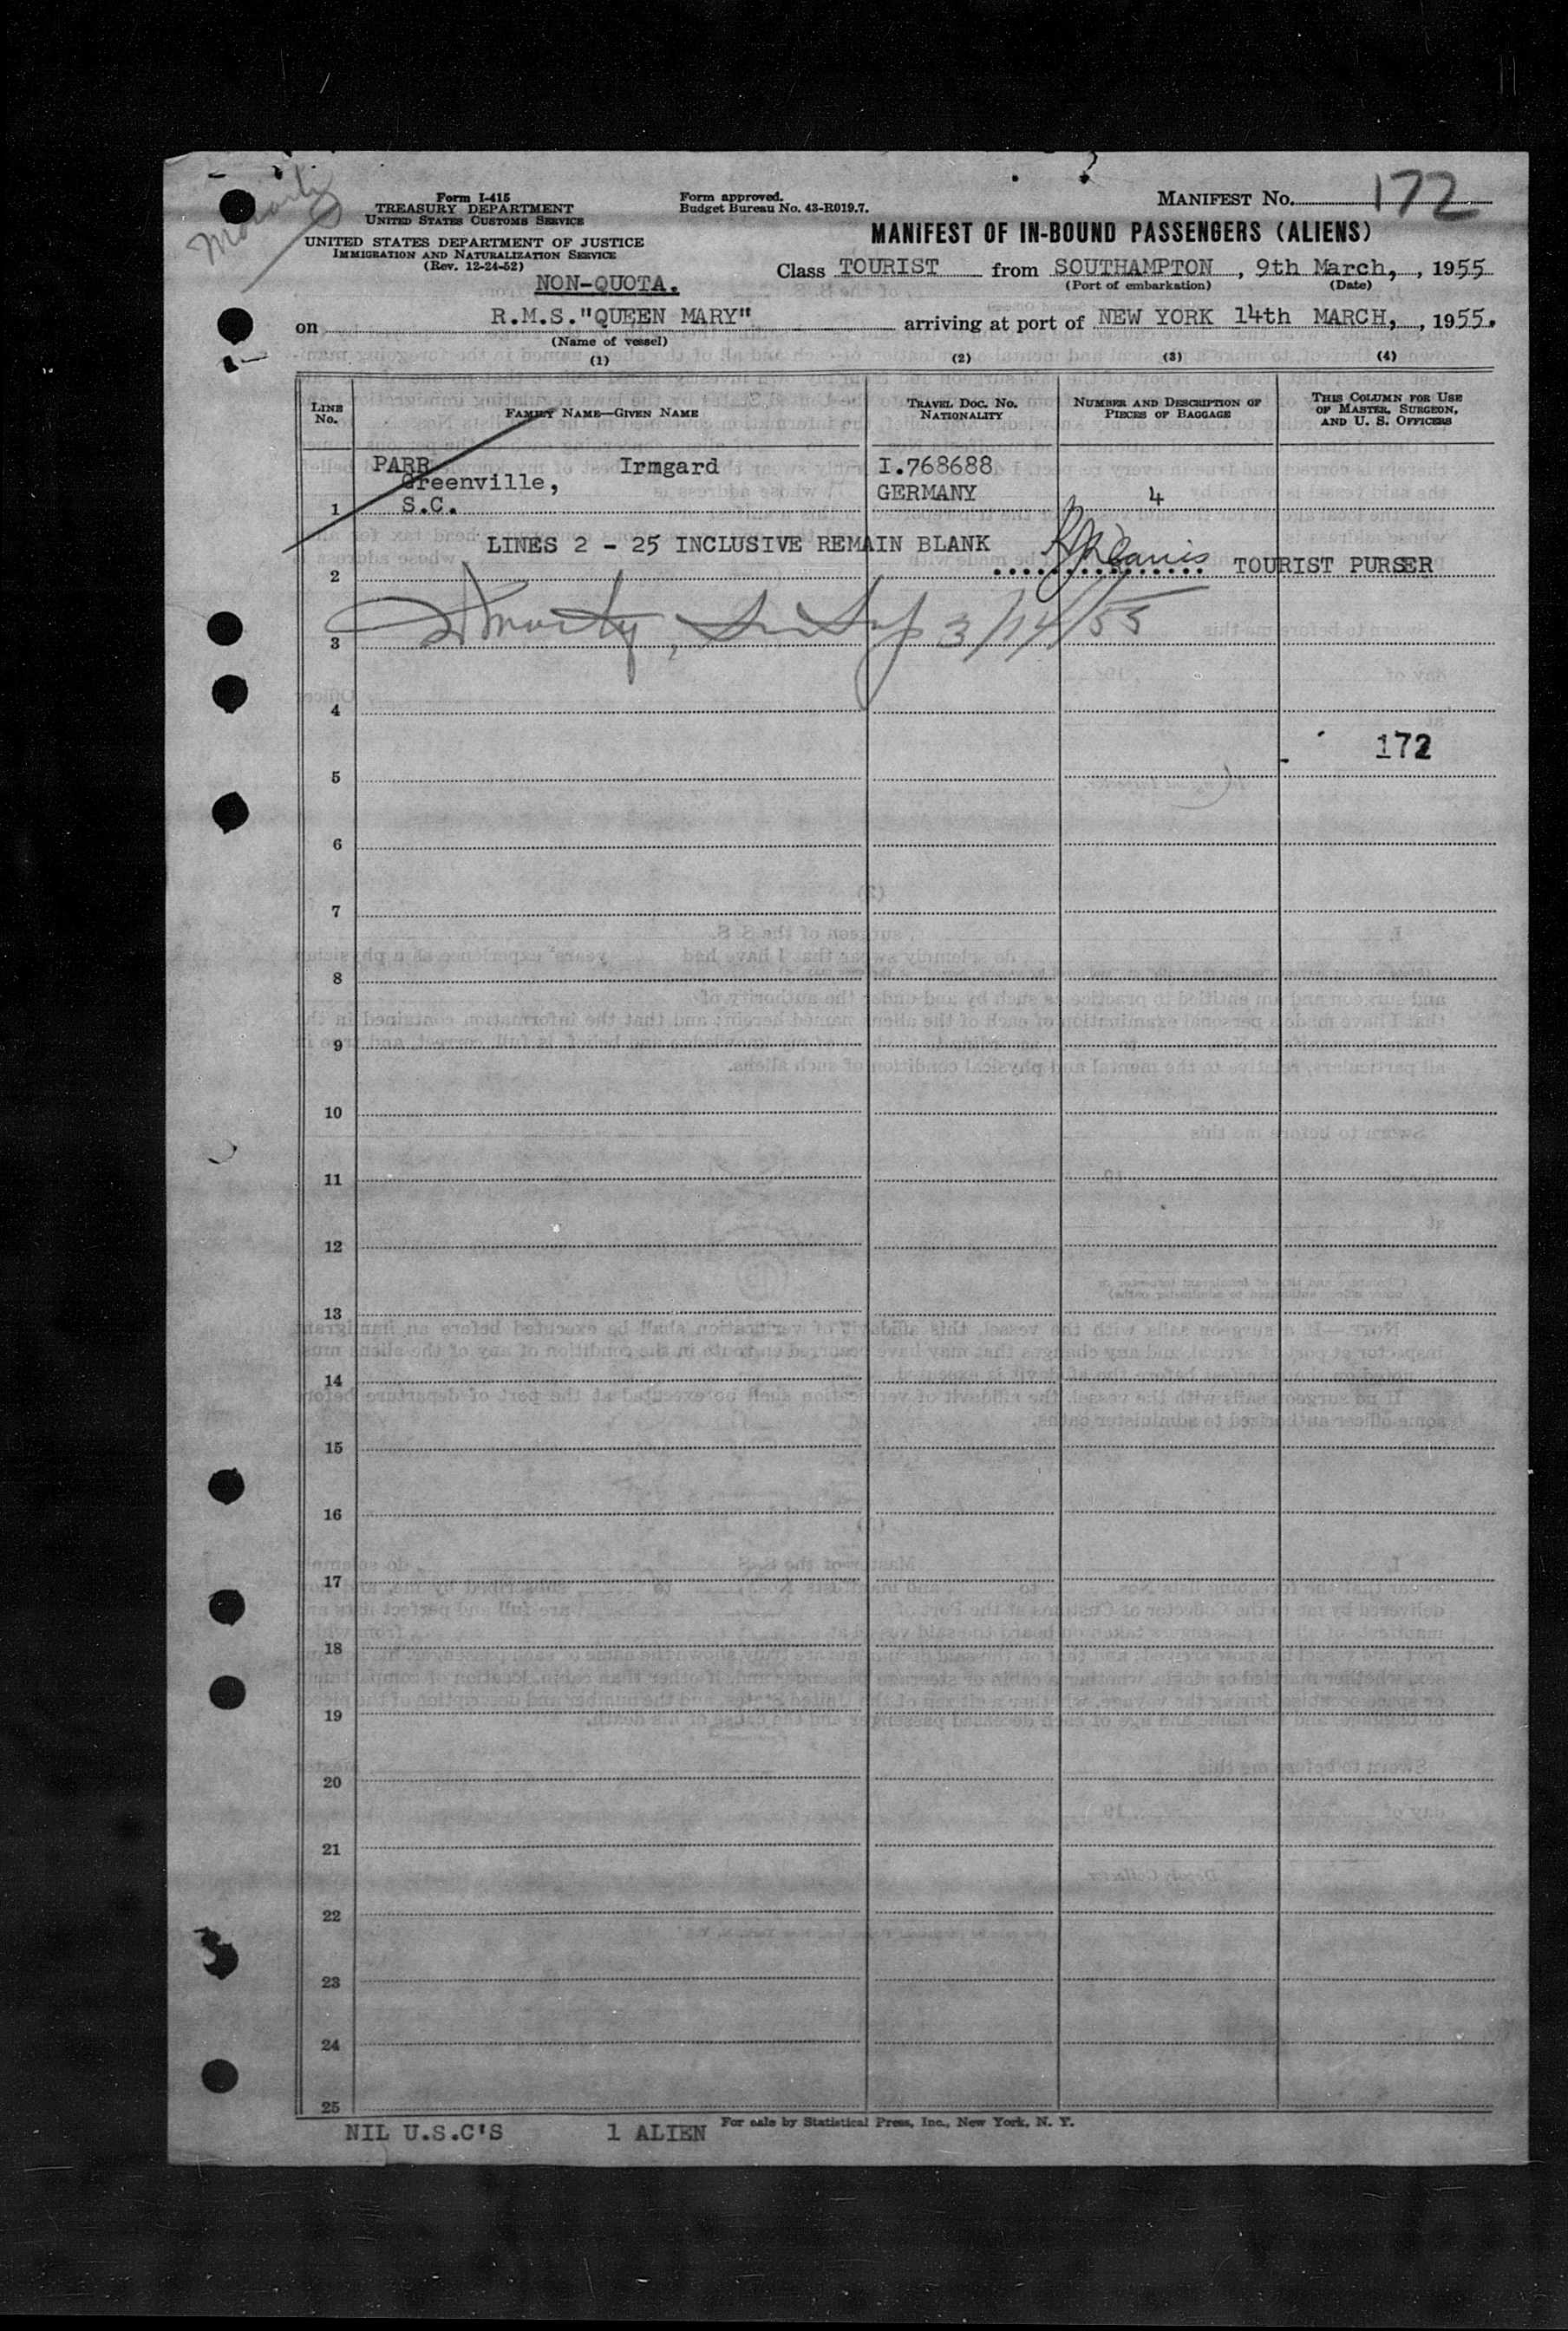 Form I-415
TREASURY DEPARTMENT
UNITED STATES CUSTOMS SERVICE
UNITED STATES DEPARTMENT OF JUSTICE
IMMIGRATION AND NATURALIZATION SERVICE
(Rev. 12-24-52)
Form approved.
Budget Bureau No. 43-R019.7.
MANIFEST No. 172
MANIFEST OF IN-BOUND PASSENGERS (ALIENS)
NON-QUOTA.
Class TOURIST from SOUTHAMPTON, 9th March, , 1955
(Port of embarkation) (Date)
on R.M.S."QUEEN MARY" arriving at port of NEW YORK 14th MARCH, , 1955.
(Name of vessel)
(1) (2) (3) (4)
LINE No. FAMILY NAME—GIVEN NAME TRAVEL DOC. NO. NATIONALITY NUMBER AND DESCRIPTION OF PIECES OF BAGGAGE THIS COLUMN FOR USE OF MASTER, SURGEON, AND U. S. OFFICERS
PARR Irmgard I.768688
Greenville, GERMANY 4
1 S.C.
LINES 2 - 25 INCLUSIVE REMAIN BLANK
2 TOURIST PURSER
3 3/14/55
4
172
5
6
7
8
9
10
11
12
13
14
15
16
17
18
19
20
21
22
23
24
25
NIL U.S.C'S 1 ALIEN For sale by Statistical Press, Inc., New York, N. Y.